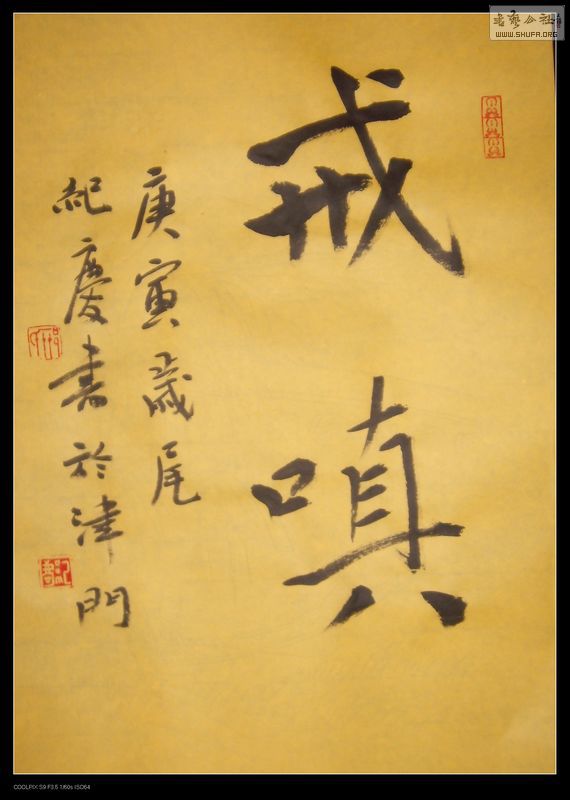 戒
嗔
庚寅歲尾
紀慶書於津門
书艺公社
WWW.SHUFA.ORG
COOLPIX S9 F3.5 1/60s ISO64